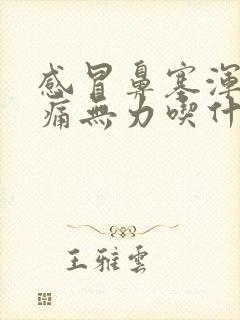 感冒鼻塞渾
痛無力喫什
王雅雲